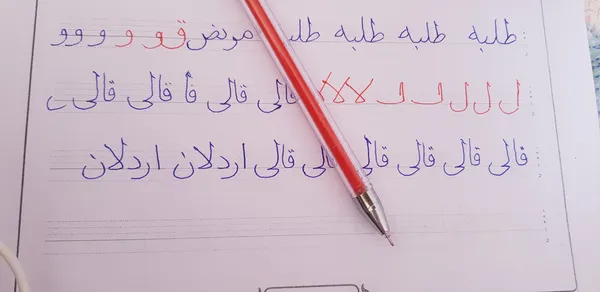 طلبه طلبه طلبه طلبـ مریض و و و و و و
ل ل ل لا لا قالی قالی قالی قا قالی قالی
قالی قالی قالی قالی قالی قالی اردلان اردلان